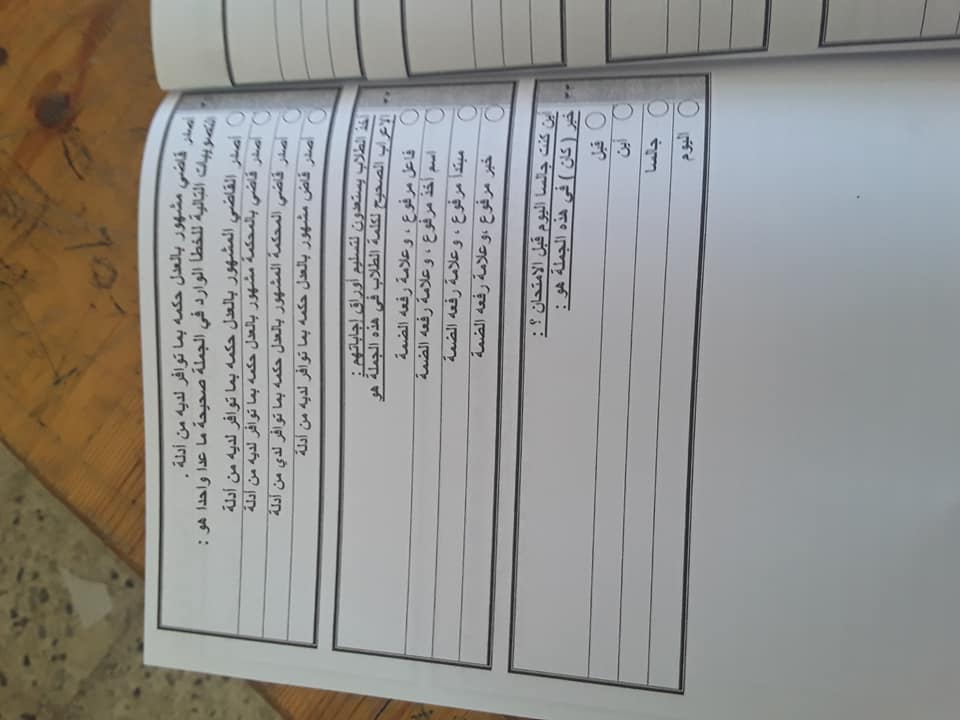 أصدر قاضي مشهور بالعدل حكمه بما توافر لديه من أدلة .
التصويبات التالية للخطأ الوارد في الجملة صحيحة ما عدا واحدا هو :
أصدر القاضي المشهور بالعدل حكمه بما توافر لديه من أدلة
أصدر قاضي بالمحكمة مشهور بالعدل حكمه بما توافر لديه من أدلة
أصدر قاضي المحكمة المشهور بالعدل حكمه بما توافر لدي من أدلة
أصدر قاض مشهور بالعدل حكمه بما توافر لديه من أدلة
أخذ الطلاب يستعدون لتسليم أوراق إجاباتهم :
الإعراب الصحيح لكلمة الطلاب في هذه الجملة هو
فاعل مرفوع ، وعلامة رفعه الضمة
اسم أخذ مرفوع ، وعلامة رفعه الضمة
مبتدأ مرفوع ، وعلامة رفعه الضمة
خبر مرفوع ،وعلامة رفعه الضمة
أين كنت جالسا اليوم قبل الامتحان ؟ :
خبر ( كان ) في هذه الجملة هو :
قبل
أين
جالسا
اليوم